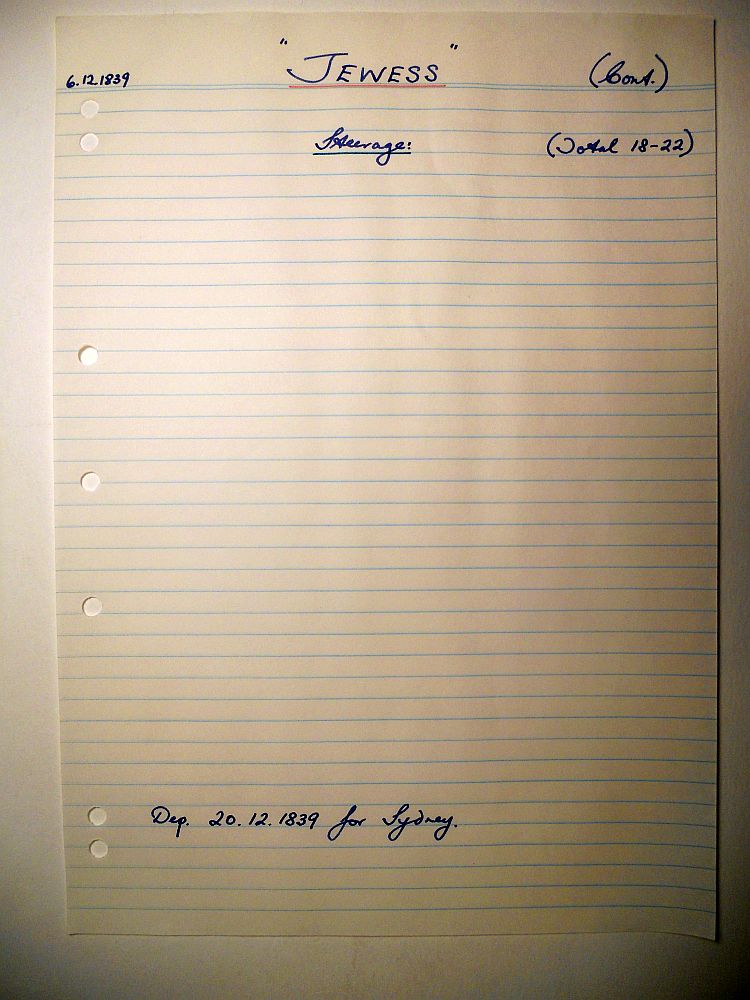 6.12.1839 "JEWESS" (Cont.)
Steerage: (Total 18-22)
Dep. 20.12.1839 for Sydney.